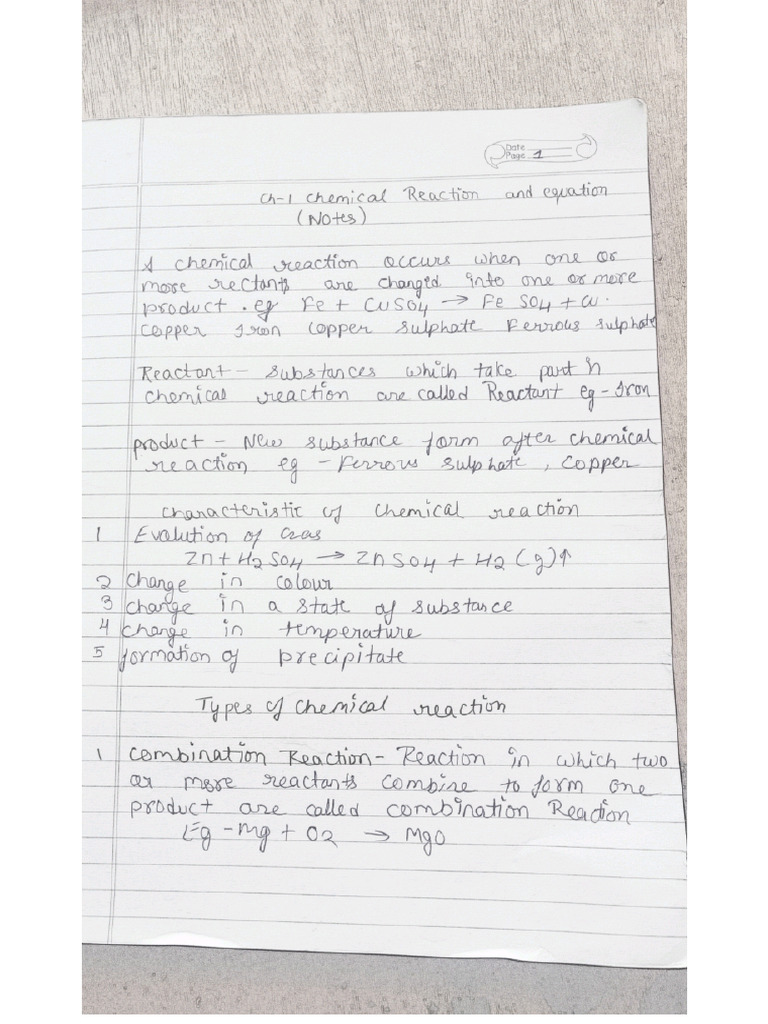 Date
Page 1
Ch-1 Chemical Reaction and equation
(Notes)
A chemical reaction occurs when one or
more rectants are changed into one or more
product . eg Fe + CuSO4 → Fe SO4 + Cu.
Copper Iron Copper sulphate Ferrous sulphate
Reactant - substances which take part in
chemical reaction are called Reactant eg - Iron
product - New substance form after chemical
reaction eg - Ferrous sulphate , Copper
Characteristic of chemical reaction
1 Evolution of Gas
Zn + H2SO4 → ZnSO4 + H2 (g)↑
2 change in colour
3 change in a state of substance
4 change in temperature
5 formation of precipitate
Types of chemical reaction
1 Combination Reaction - Reaction in which two
or more reactants combine to form one
product are called combination Reaction
Eg - Mg + O2 → MgO